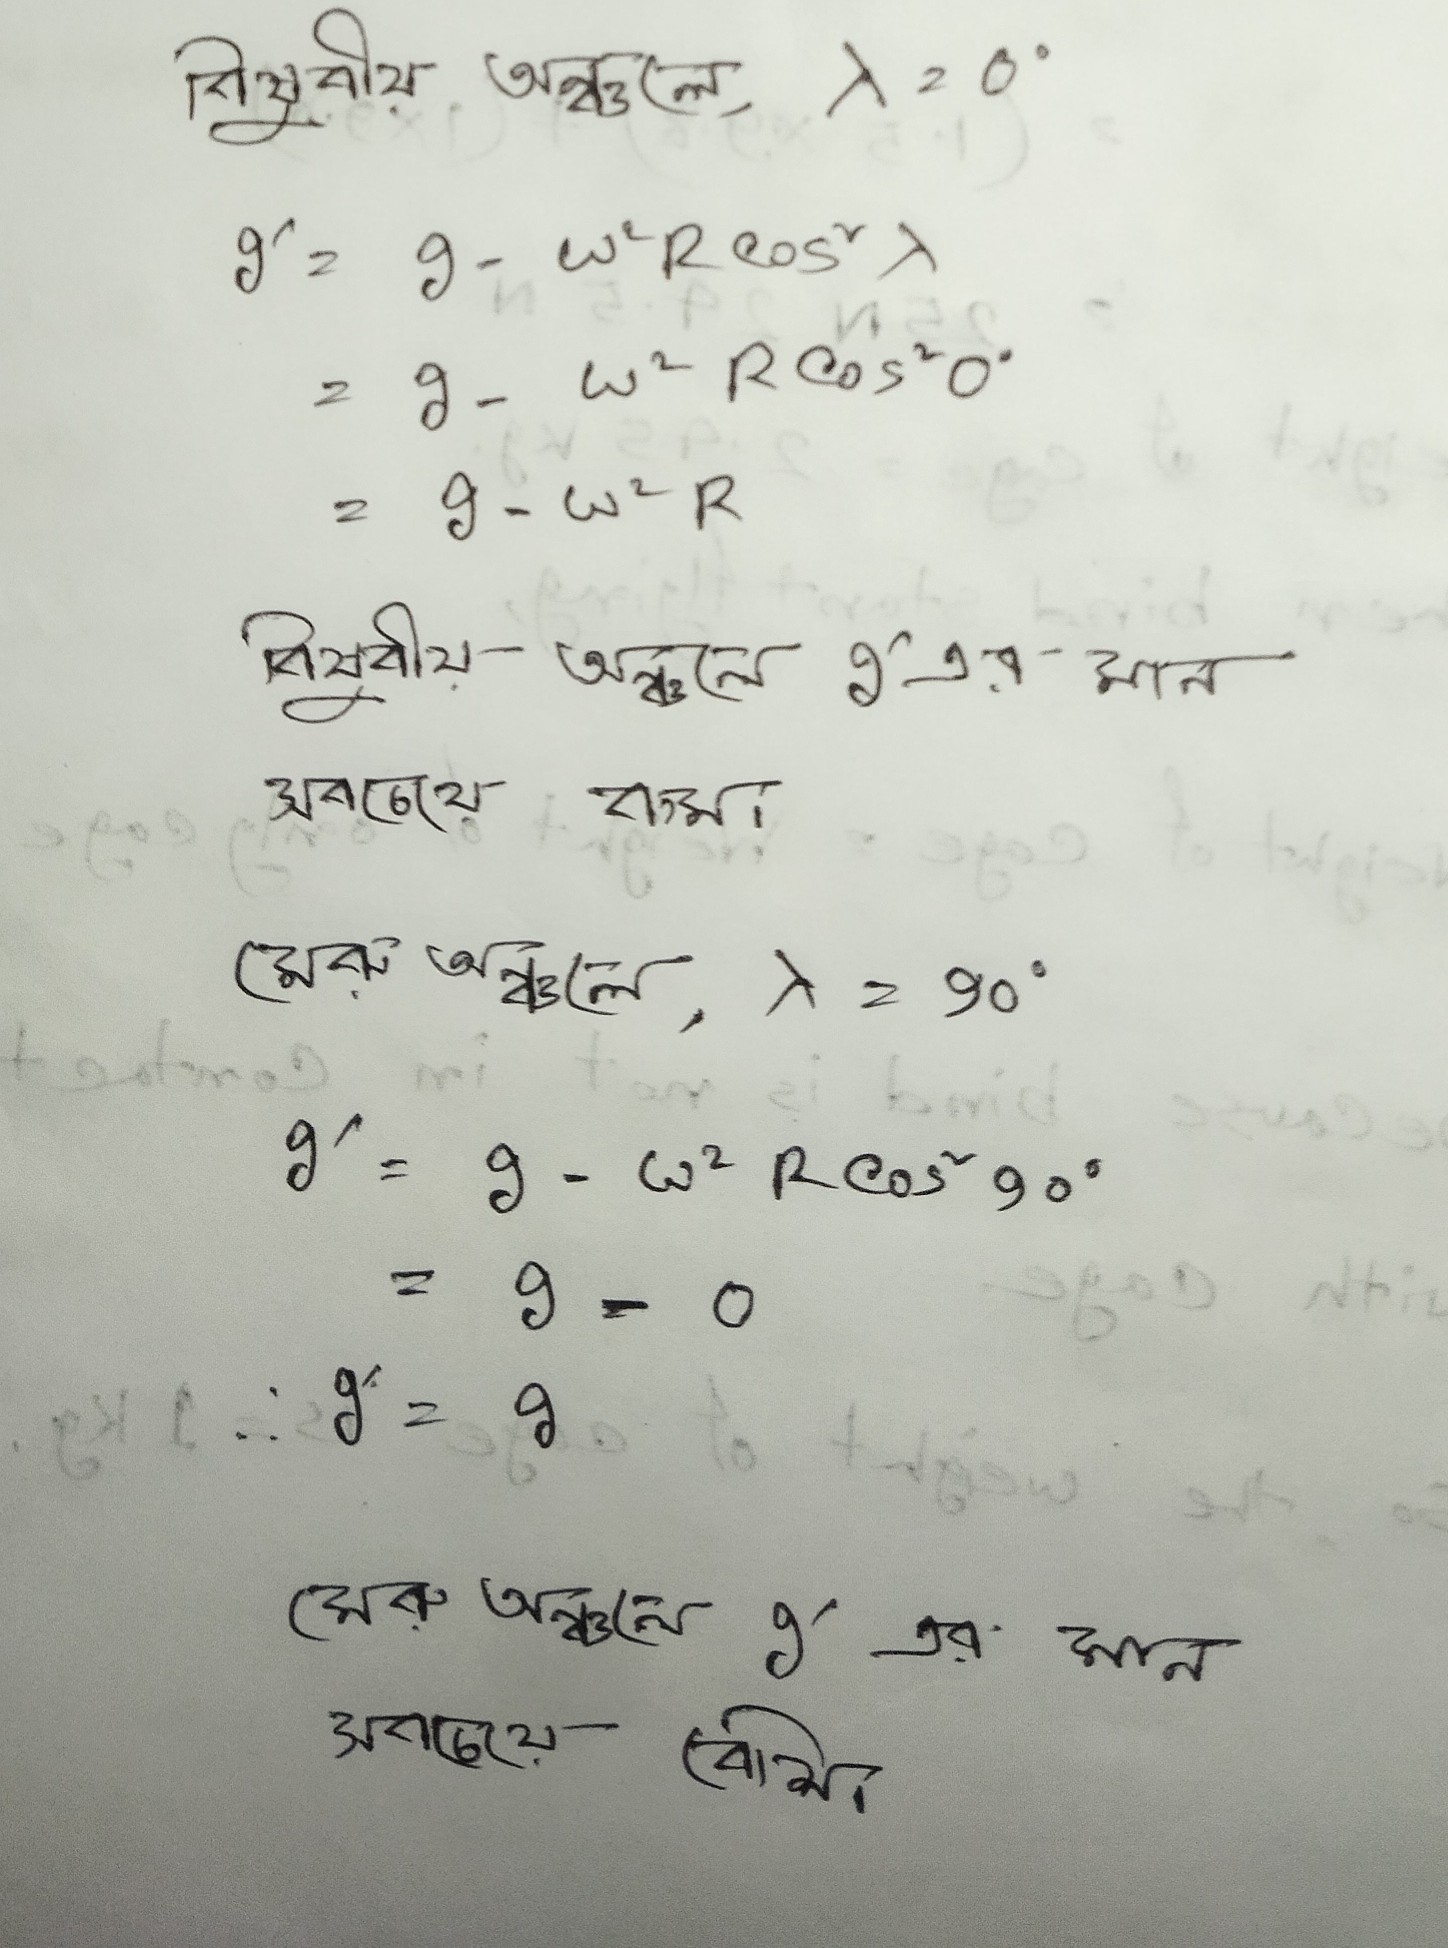 বিষুবীয় অঞ্চলে, λ = 0°
g′ = g - ω²R cos²λ
= g - ω² R cos²0°
= g - ω² R
বিষুবীয় অঞ্চলে g′ এর মান
সবচেয়ে কম।
মেরু অঞ্চলে, λ = 90°
g′ = g - ω² R cos²90°
= g - 0
∴ g′ = g
মেরু অঞ্চলে g′ এর মান
সবচেয়ে বেশি।